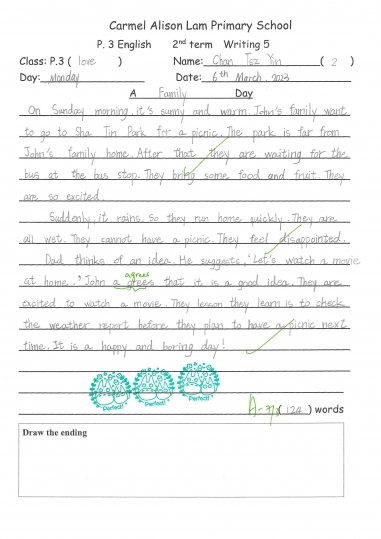 Carmel Alison Lam Primary School
P. 3 English 2nd term Writing 5
Class: P.3 ( love ) Name: Chan Tsz Yin ( 2 )
Day: Monday Date: 6th March, 2023
A Family Day
On Sunday morning, it's sunny and warm. John's family want
to go to Sha Tin Park for a picnic. The park is far from
John's family home. After that they are waiting for the
bus at the bus stop. They bring some food and fruit. They
are so excited.
Suddenly, it rains. So they run home quickly. They are
all wet. They cannot have a picnic. They feel disappointed.
Dad thinks of an idea. He suggests, 'Let's watch a movie
agrees
at home.' John a grees that it is a good idea. They are
excited to watch a movie. They lesson they learn is to check
the weather report before they plan to have a picnic next
time. It is a happy and boring day!
Perfect! Perfect! Perfect!
( 124 ) words
Draw the ending